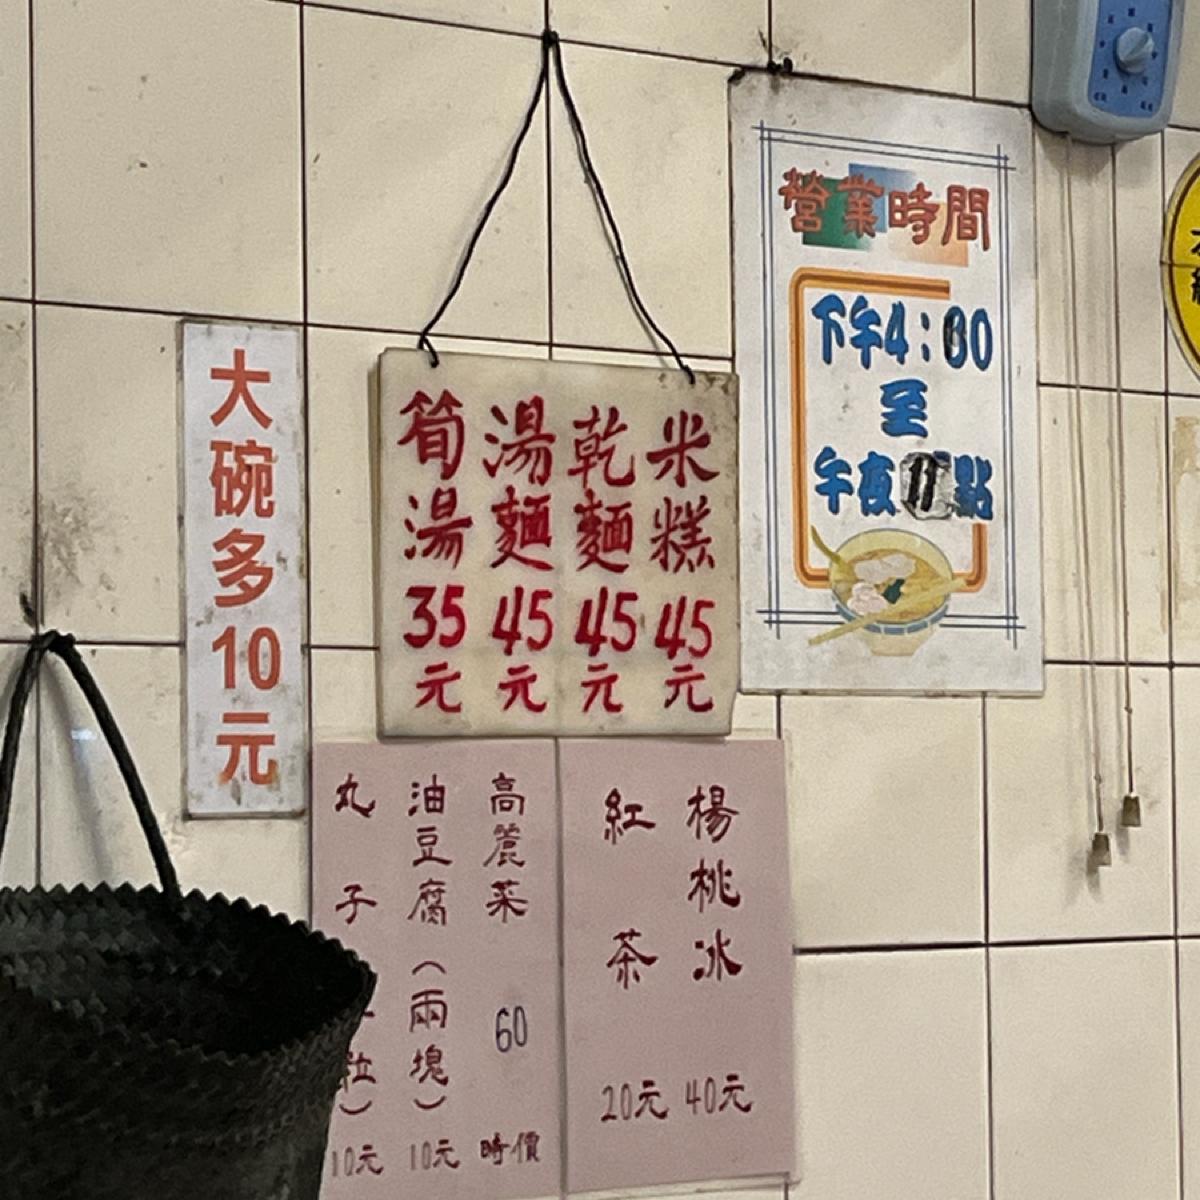 大碗多10元
米糕45元
乾麵45元
湯麵45元
筍湯35元
營業時間
下午4:00
至
午夜11點
楊桃冰 40元
紅茶 20元
高麗菜 60 時價
油豆腐(兩塊) 10元
丸子 粒) 10元